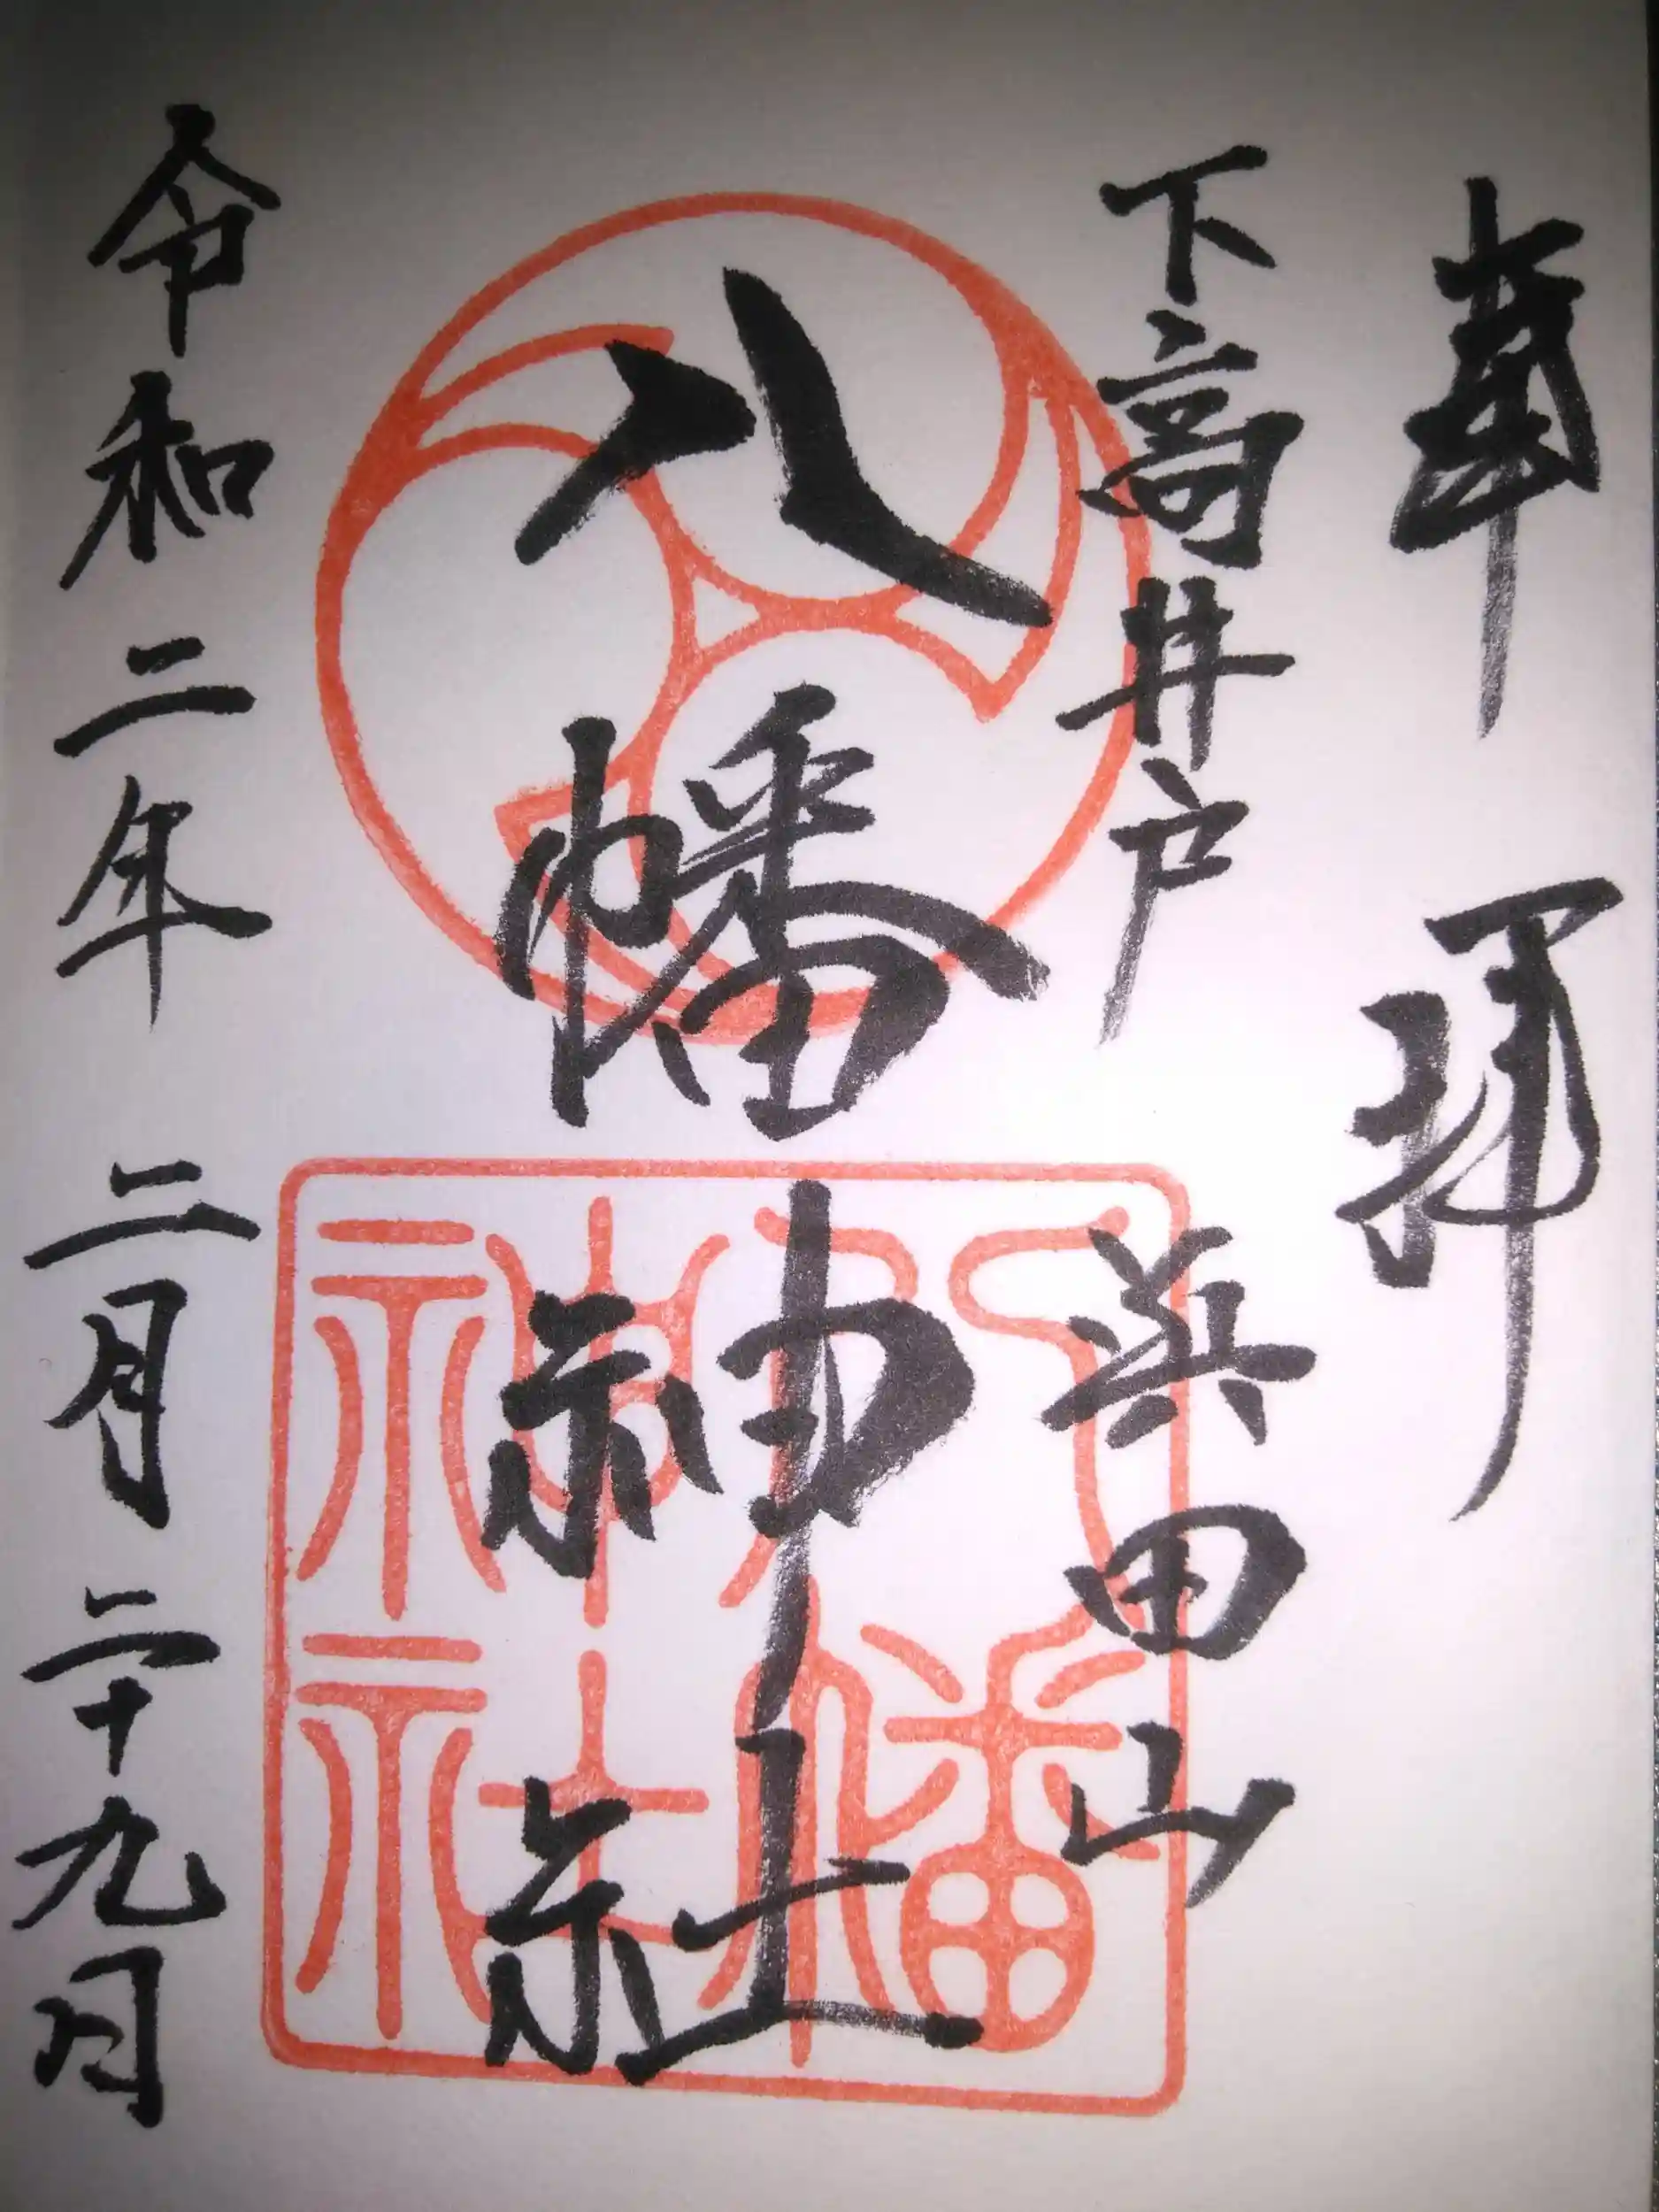 奉拝
下高井戸 浜田山
八幡神社
令和二年二月二十九日
八幡
神社